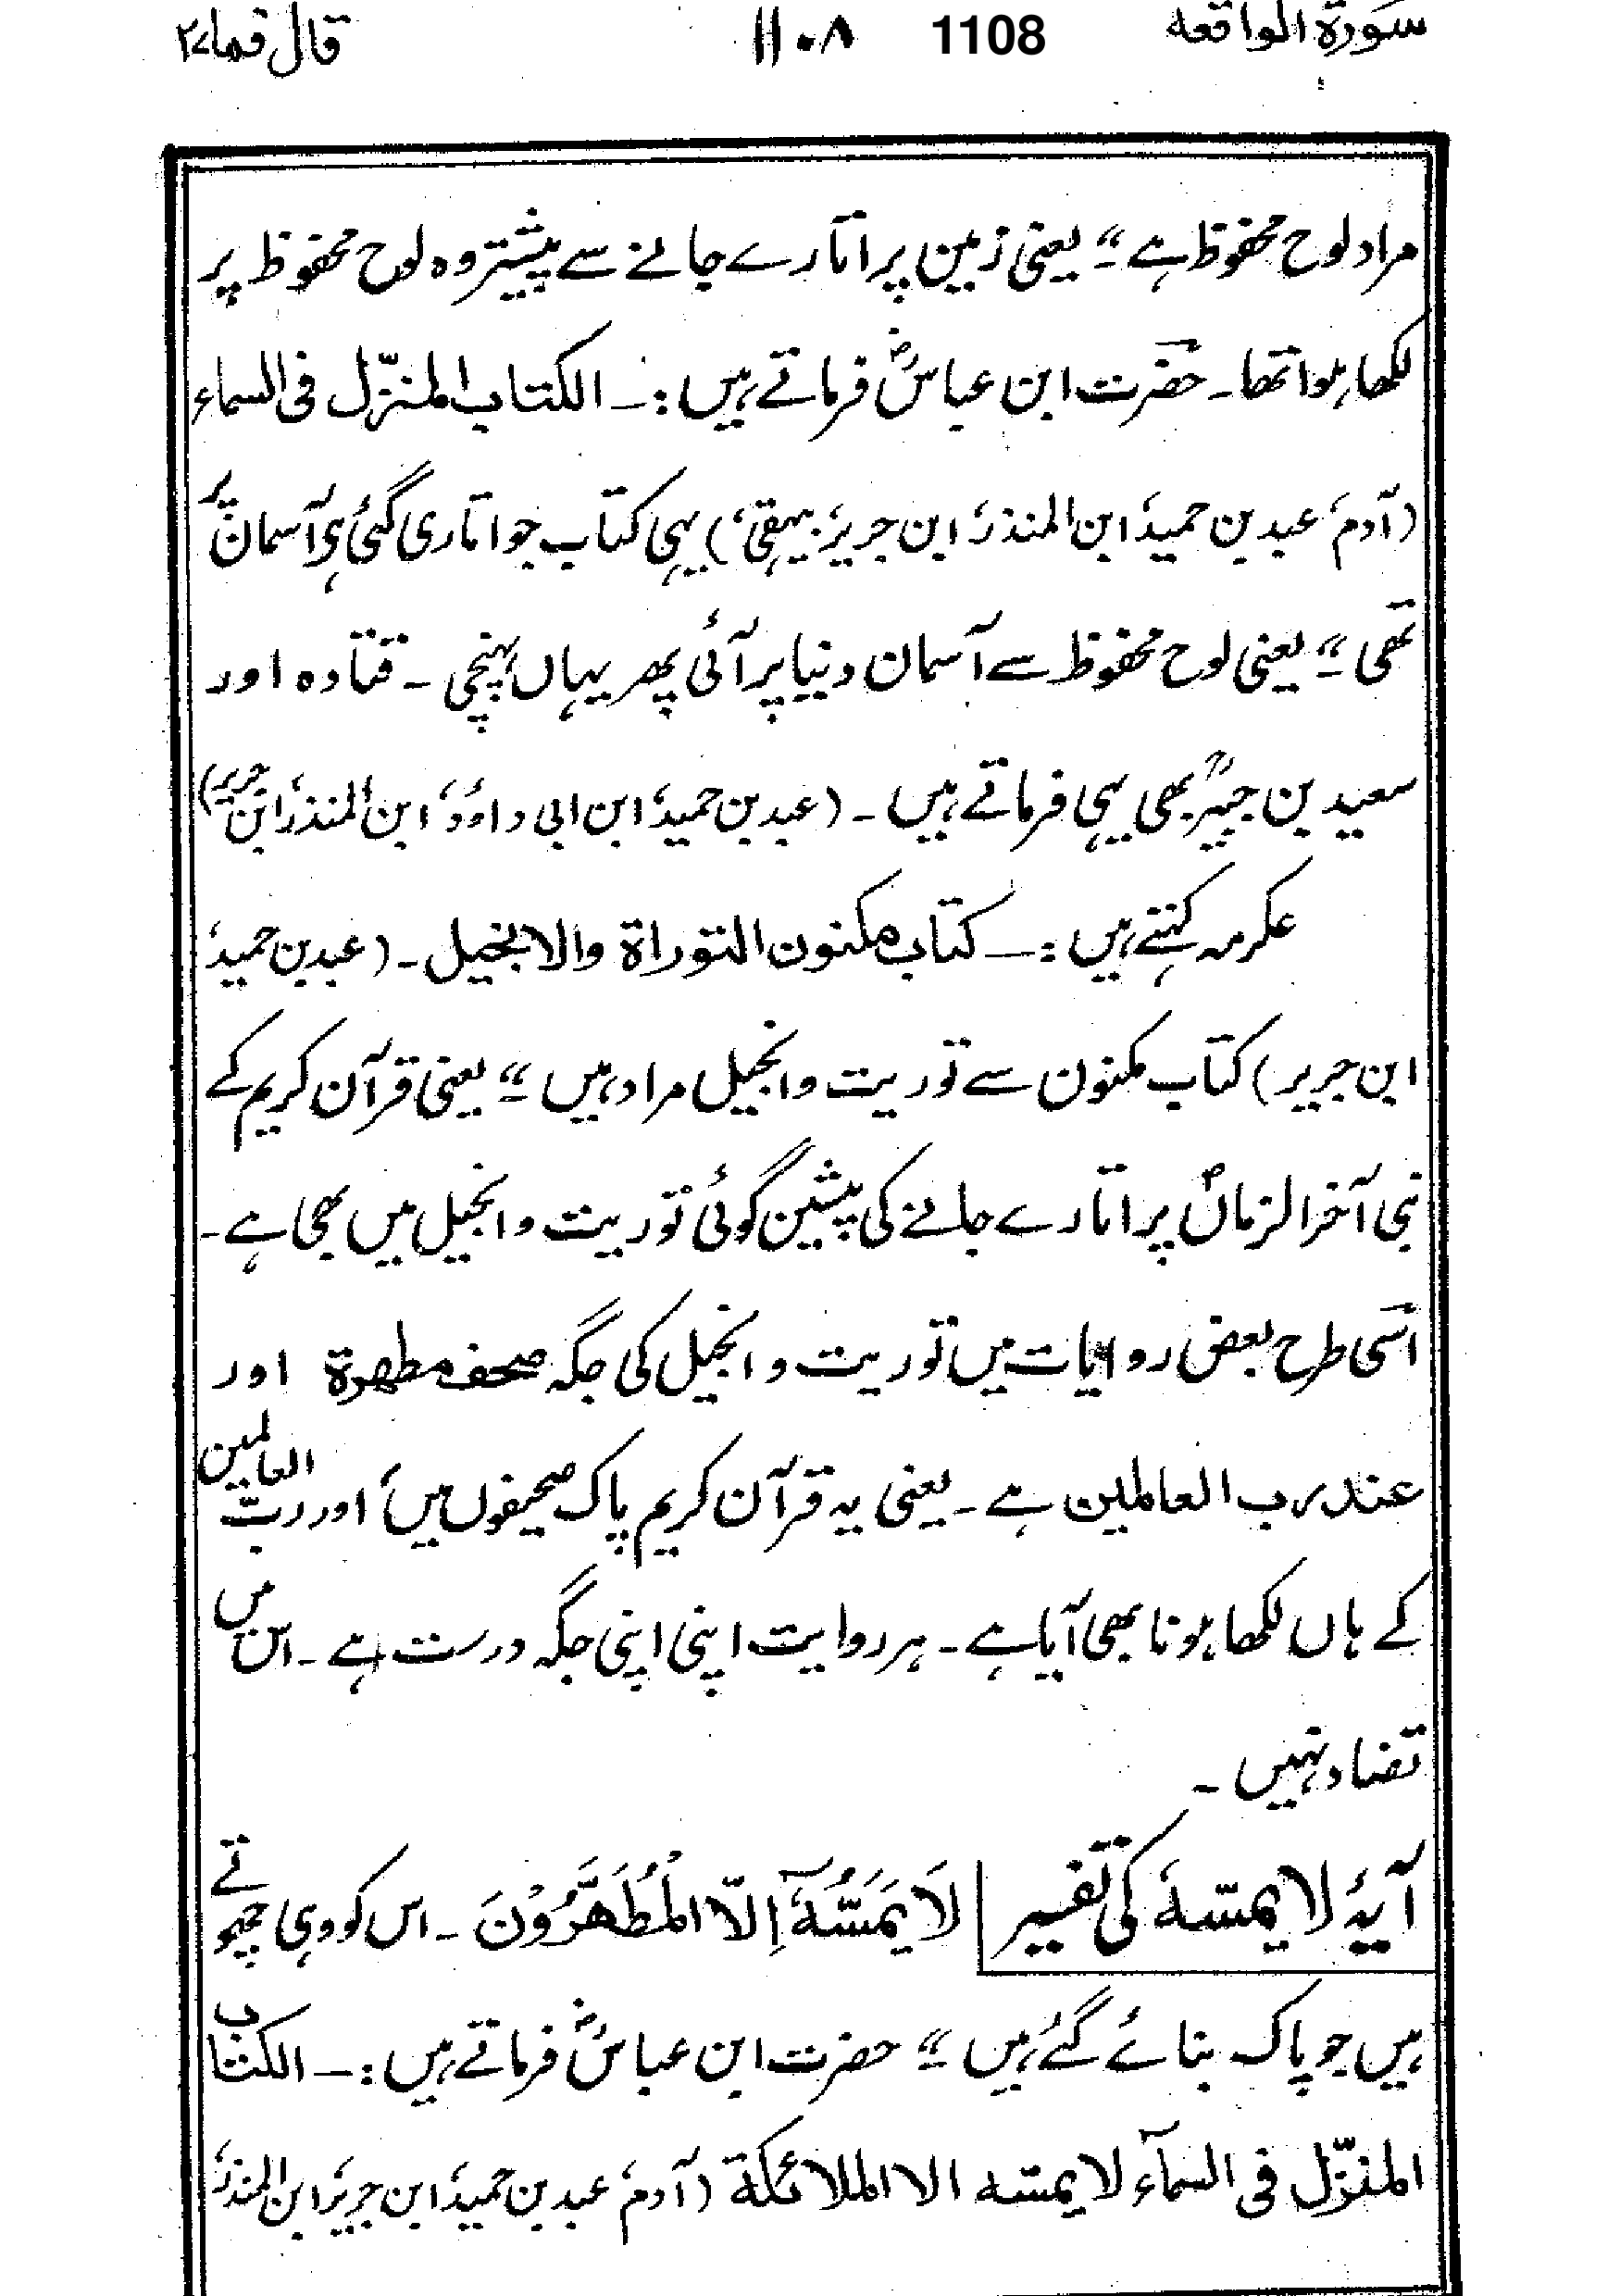 سورۃ الواقعہ 1108 ۱۱۰۸ قال فما ۲۷
مراد لوح محفوظ ہے“۔ یعنی زمین پر اتارے جانے سے پیشتر وہ لوح محفوظ پر
لکھا ہوا تھا۔ حضرت ابن عباسؓ فرماتے ہیں :۔ الکتاب المنزّل فی السماء
(آدم، عبد بن حمید، ابن المنذر، ابن جریر، بیہقی،) یہی کتاب جو اتاری گئی ہی آسمان پر
تھی“۔ یعنی لوح محفوظ سے آسمان دنیا پر آئی پھر یہاں پہنچی۔ قتادہ اور
سعید بن جبیرؒ بھی یہی فرماتے ہیں۔ (عبد بن حمید، ابن ابی داؤد، ابن المنذر، ابن جریر)
عکرمہ کہتے ہیں :۔ کتاب مکنون التوراۃ والانجیل۔ (عبد بن حمید،
ابن جریر) کتاب مکنون سے توریت و انجیل مراد ہیں“۔ یعنی قرآن کریم کے
نبی آخر الزماںؐ پر اتارے جانے کی پیشین گوئی توریت و انجیل میں بھی ہے۔
اسی طرح بعض روایات میں توریت و انجیل کی جگہ صحف مطھرۃ اور
عند رب العالمین ہے۔ یعنی یہ قرآن کریم پاک صحیفوں میں، اور ربّ العالمین
کے ہاں لکھا ہونا بھی آیا ہے۔ ہر روایت اپنی اپنی جگہ درست ہے۔ اس میں
تضاد نہیں۔
آیۂ لا یمسّہٗ کی تفسیر لَا یَمَسُّہٗٓ اِلَّا الْمُطَھَّرُوْنَ۔ اس کو وہی چھوتے
ہیں جو پاک بنائے گئے ہیں“۔ حضرت ابن عباسؓ فرماتے ہیں :۔ الکتاب
المنزّل فی السمآء لا یمسّہ الا الملائکۃ (آدم، عبد بن حمید، ابن جریر، ابن المنذر،